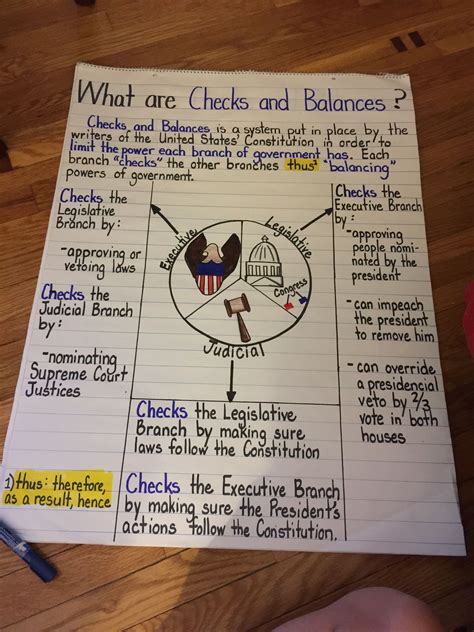 What are Checks and Balances?
Checks and Balances is a system put in place by the
writers of the United States' Constitution in order to
limit the power each branch of government has. Each
branch "checks" the other branches thus¹ "balancing"
powers of government.
Checks the
Legislative
Branch by:
-approving or
vetoing laws
Checks the
Judicial Branch
by:
-nominating
Supreme Court
Justices
Executive
Legislative
Congress
Judicial
Checks the
Executive Branch
by:
-approving
people nomi-
nated by the
president
-can impeach
the president
to remove him
-can override
a presidencial
veto by 2/3
vote in both
houses
Checks the Legislative
Branch by making sure
laws follow the Constitution
Checks the Executive Branch
by making sure the President's
actions follow the Constitution.
1) thus: therefore,
as a result, hence